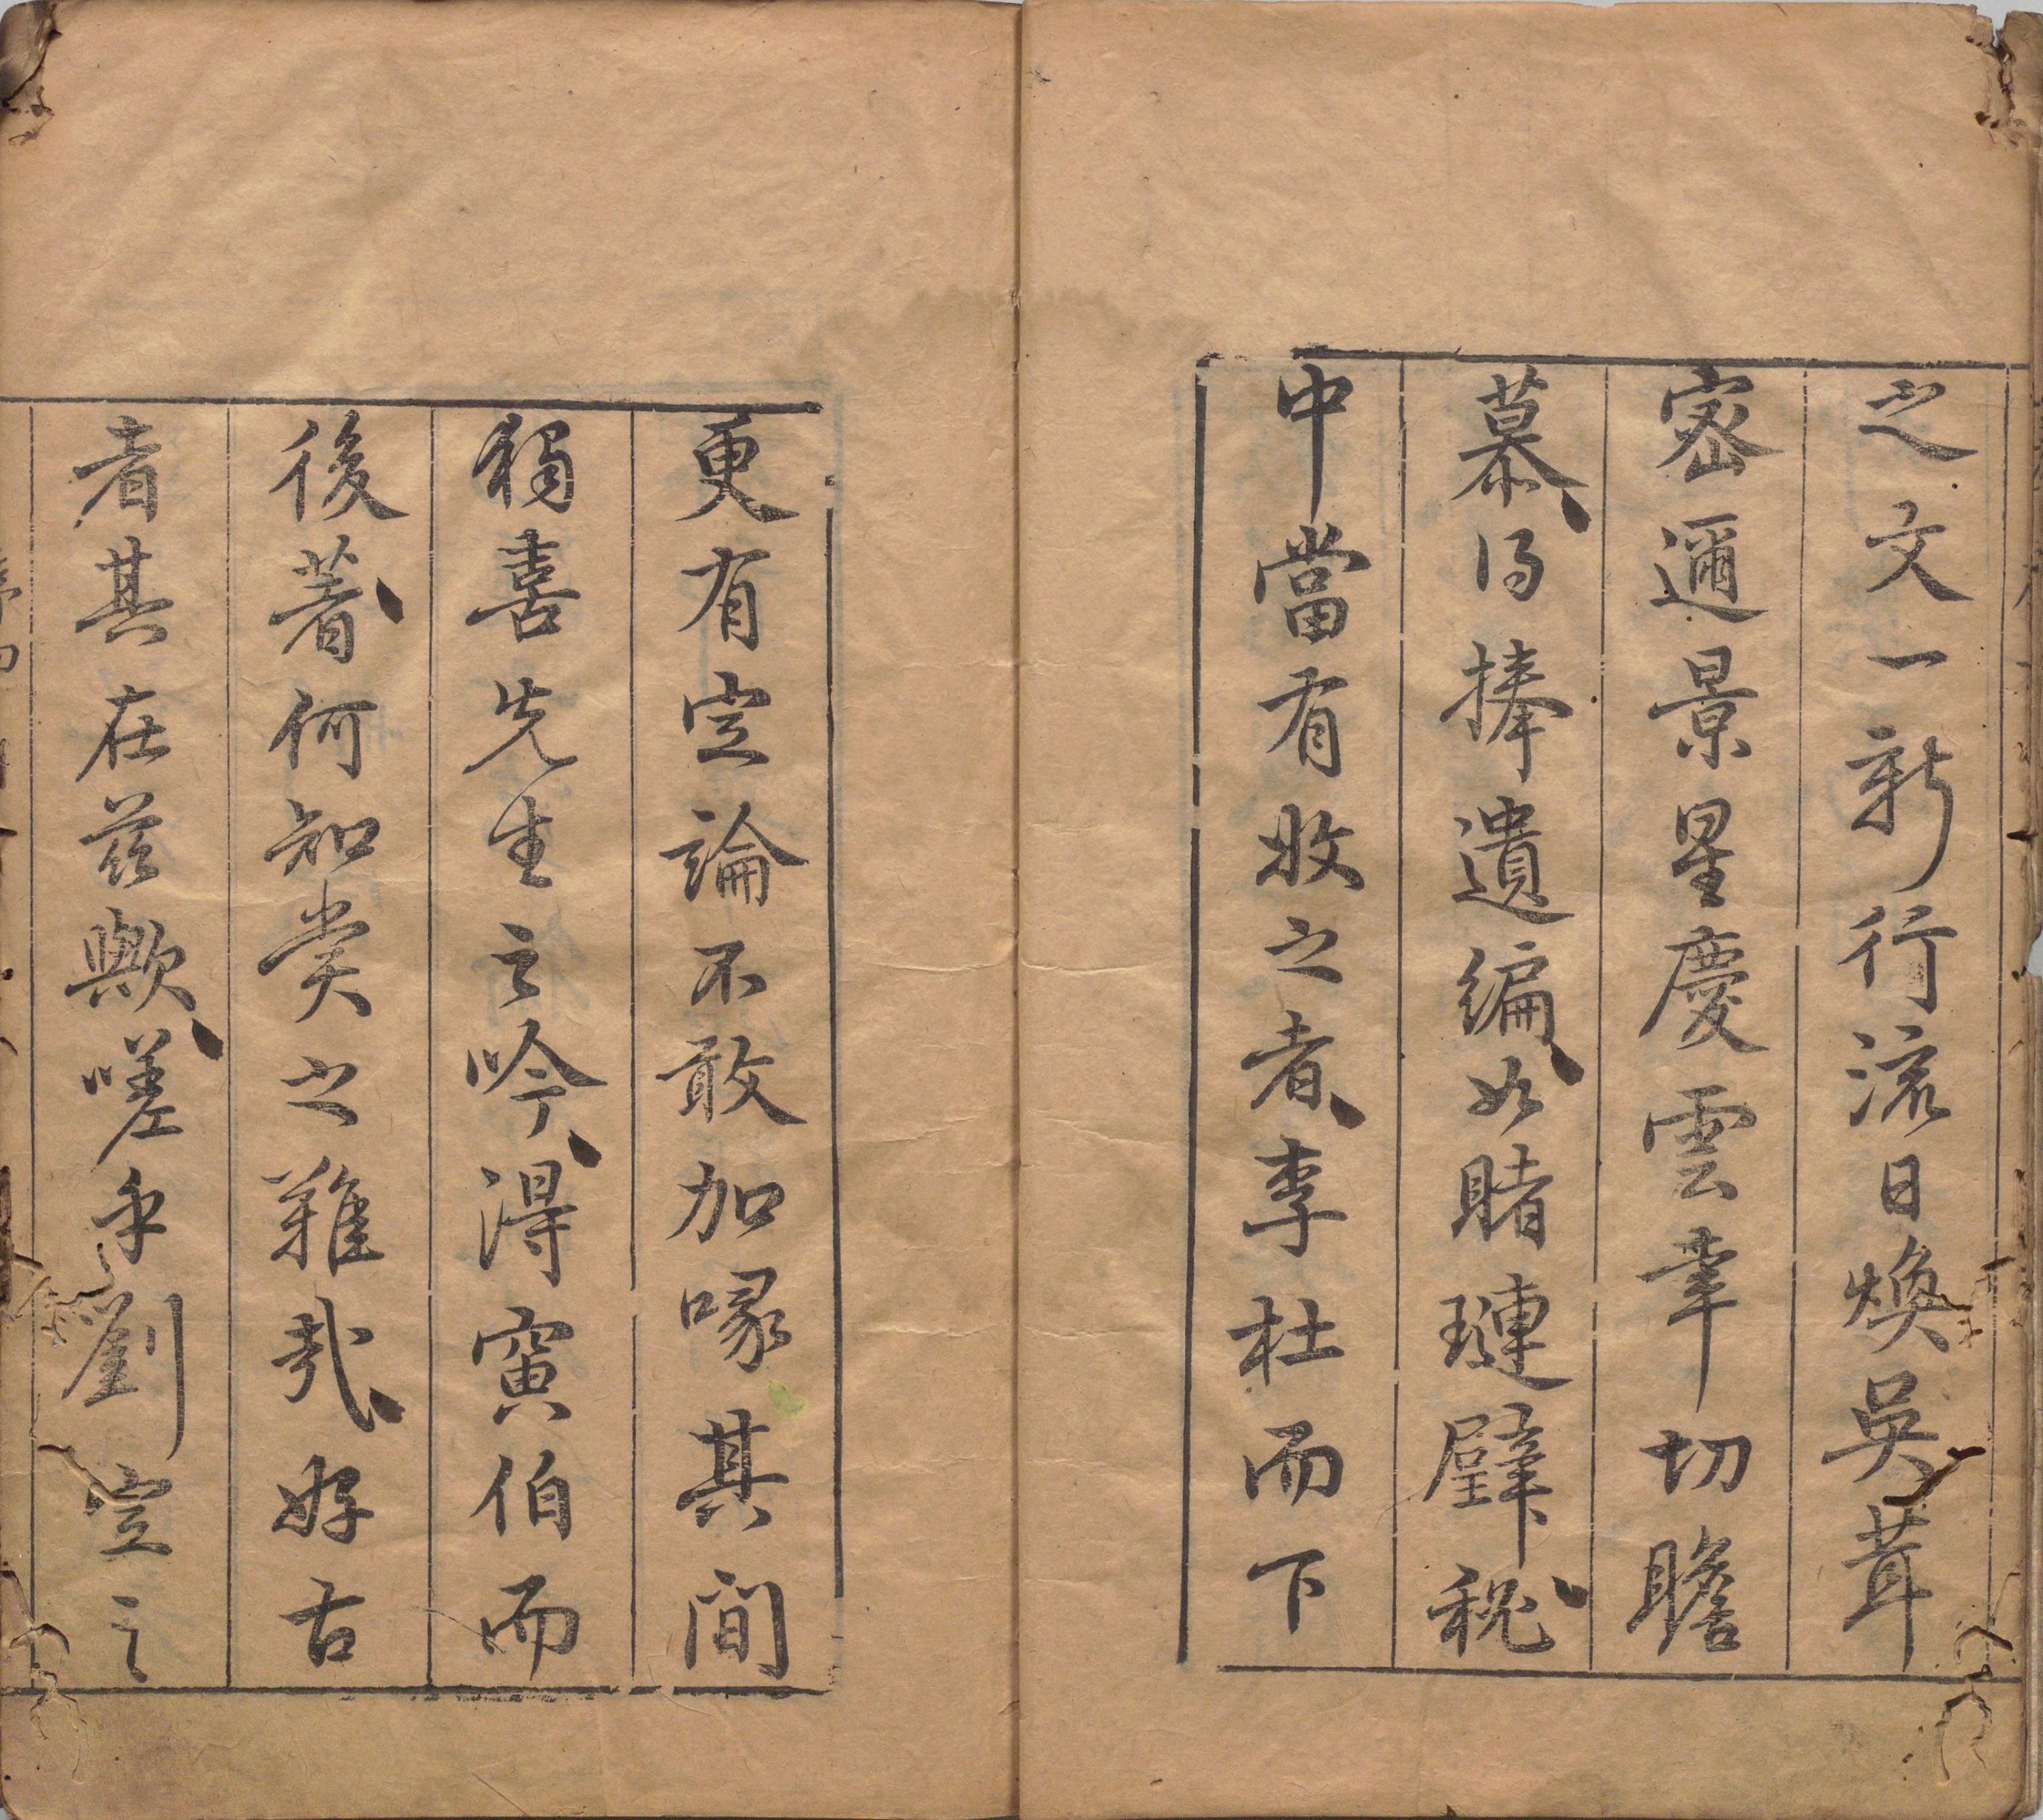 之文一新行流日煥吳茸
密邇景星慶雲幸切瞻
慕、得捧遺編、如睹璉璧秘、
中當有收之者、李杜而下
更有定論不敢加喙其間
獨喜先生之吟、得寅伯而
後著、何知賞之難哉、好古
者其在茲歟、嗟乎劉定之